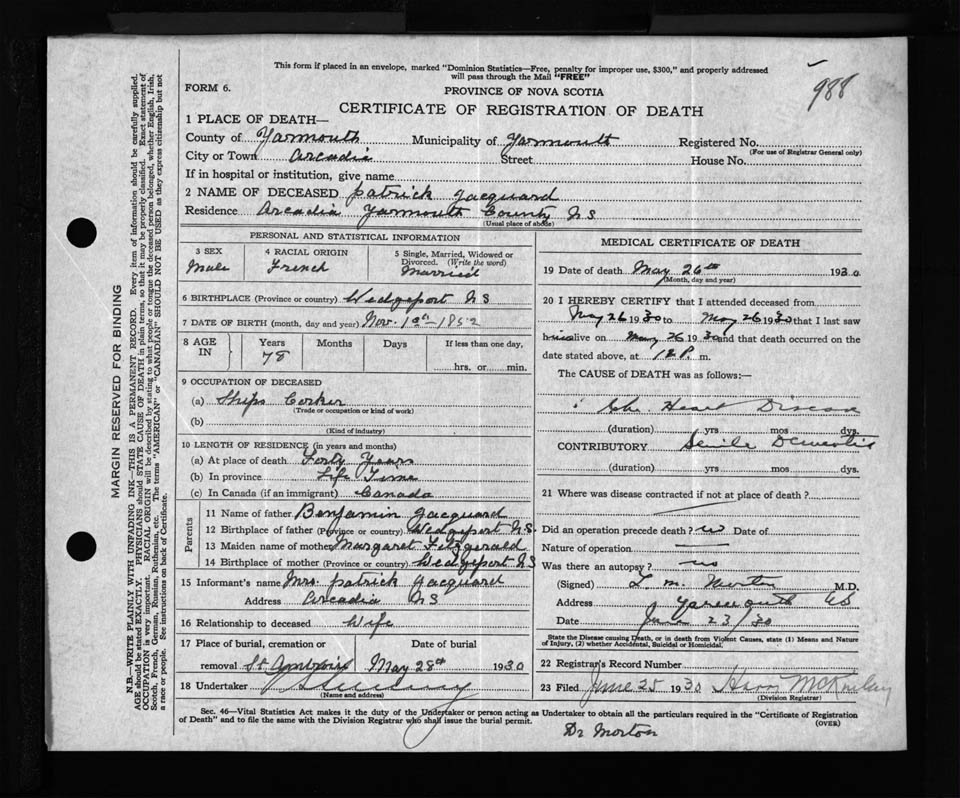 This form if placed in an envelope, marked "Dominion Statistics—Free, penalty for improper use, $300," and properly addressed
will pass through the Mail "FREE"
988
FORM 6.
PROVINCE OF NOVA SCOTIA
CERTIFICATE OF REGISTRATION OF DEATH
1 PLACE OF DEATH—
County of Yarmouth Municipality of Yarmouth Registered No.
(For use of Registrar General only)
City or Town Arcadia Street House No.
If in hospital or institution, give name
2 NAME OF DECEASED Patrick Jacquard
Residence Arcadia Yarmouth County NS
(Usual place of abode)
PERSONAL AND STATISTICAL INFORMATION
3 SEX
Male
4 RACIAL ORIGIN
French
5 Single, Married, Widowed or
Divorced. (Write the word)
Married
6 BIRTHPLACE (Province or country) Wedgeport NS
7 DATE OF BIRTH (month, day and year) Nov. 1852
8 AGE
IN
Years
78
Months
Days
If less than one day,
hrs. or min.
9 OCCUPATION OF DECEASED
(a) Ships Corker
(Trade or occupation or kind of work)
(b)
(Kind of industry)
10 LENGTH OF RESIDENCE (in years and months)
(a) At place of death Forty Years
(b) In province Life Time
(c) In Canada (if an immigrant) Canada
Parents
11 Name of father Benjamin Jacquard
12 Birthplace of father (Province or country) Wedgeport NS.
13 Maiden name of mother Margaret Fitzgerald
14 Birthplace of mother (Province or country) Wedgeport NS
15 Informant's name Mrs. Patrick Jacquard
Address Arcadia NS
16 Relationship to deceased Wife
17 Place of burial, cremation or Date of burial
removal St Ambrose May 28th 1930
18 Undertaker
(Name and address)
MEDICAL CERTIFICATE OF DEATH
19 Date of death May 26th 1930
(Month, day and year)
20 I HEREBY CERTIFY that I attended deceased from
May 26 1930 to May 26 1930 that I last saw
him alive on May 26 1930 and that death occurred on the
date stated above, at 12 P. m.
The CAUSE of DEATH was as follows:—
Chr. Heart Disease
(duration) yrs mos dys.
CONTRIBUTORY Senile Dementia
(duration) yrs mos dys.
21 Where was disease contracted if not at place of death?
Did an operation precede death? no Date of
Nature of operation
Was there an autopsy? no
(Signed) L. M. Morton M.D.
Address Yarmouth NS
Date 23/30
State the Disease causing Death, or in death from Violent Causes, state (1) Means and Nature
of Injury, (2) whether Accidental, Suicidal or Homicidal.
22 Registrar's Record Number
23 Filed June 25 1930 McKinley
(Division Registrar)
Sec. 46—Vital Statistics Act makes it the duty of the Undertaker or person acting as Undertaker to obtain all the particulars required in the "Certificate of Registration
of Death" and to file the same with the Division Registrar who shall issue the burial permit.
(OVER)
Dr Morton
MARGIN RESERVED FOR BINDING
N.B.—WRITE PLAINLY WITH UNFADING INK—THIS IS A PERMANENT RECORD. Every item of information should be carefully supplied.
AGE should be stated EXACTLY. PHYSICIANS should STATE CAUSE OF DEATH in plain terms, so that it may be properly classified. Exact statement of
OCCUPATION is very important. RACIAL ORIGIN will be described by stating to what people or tongue the deceased person belonged, whether English, Irish,
Scotch, French, German, Russian, Ruthenian, etc. The terms "AMERICAN" or "CANADIAN" SHOULD NOT BE USED as they express citizenship but not
a race or people. See instructions on back of Certificate.